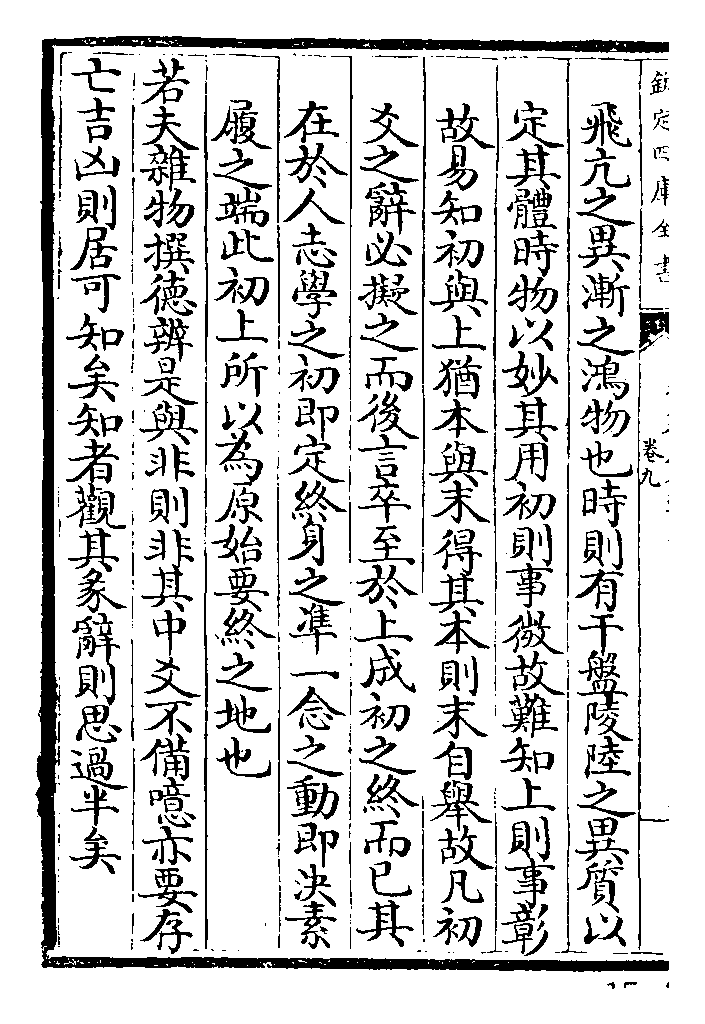 欽定四庫全書
卷九
飛亢之異漸之鴻物也時則有干盤陵陸之異質以
定其體時物以妙其用初則事微故難知上則事彰
故易知初與上猶本與末得其本則末自舉故凡初
爻之辭必擬之而後言卒至於上成初之終而已其
在於人志學之初即定終身之準一念之動即決素
履之端此初上所以為原始要終之地也
若夫雜物撰德辨是與非則非其中爻不備噫亦要存
亡吉凶則居可知矣知者觀其彖辭則思過半矣